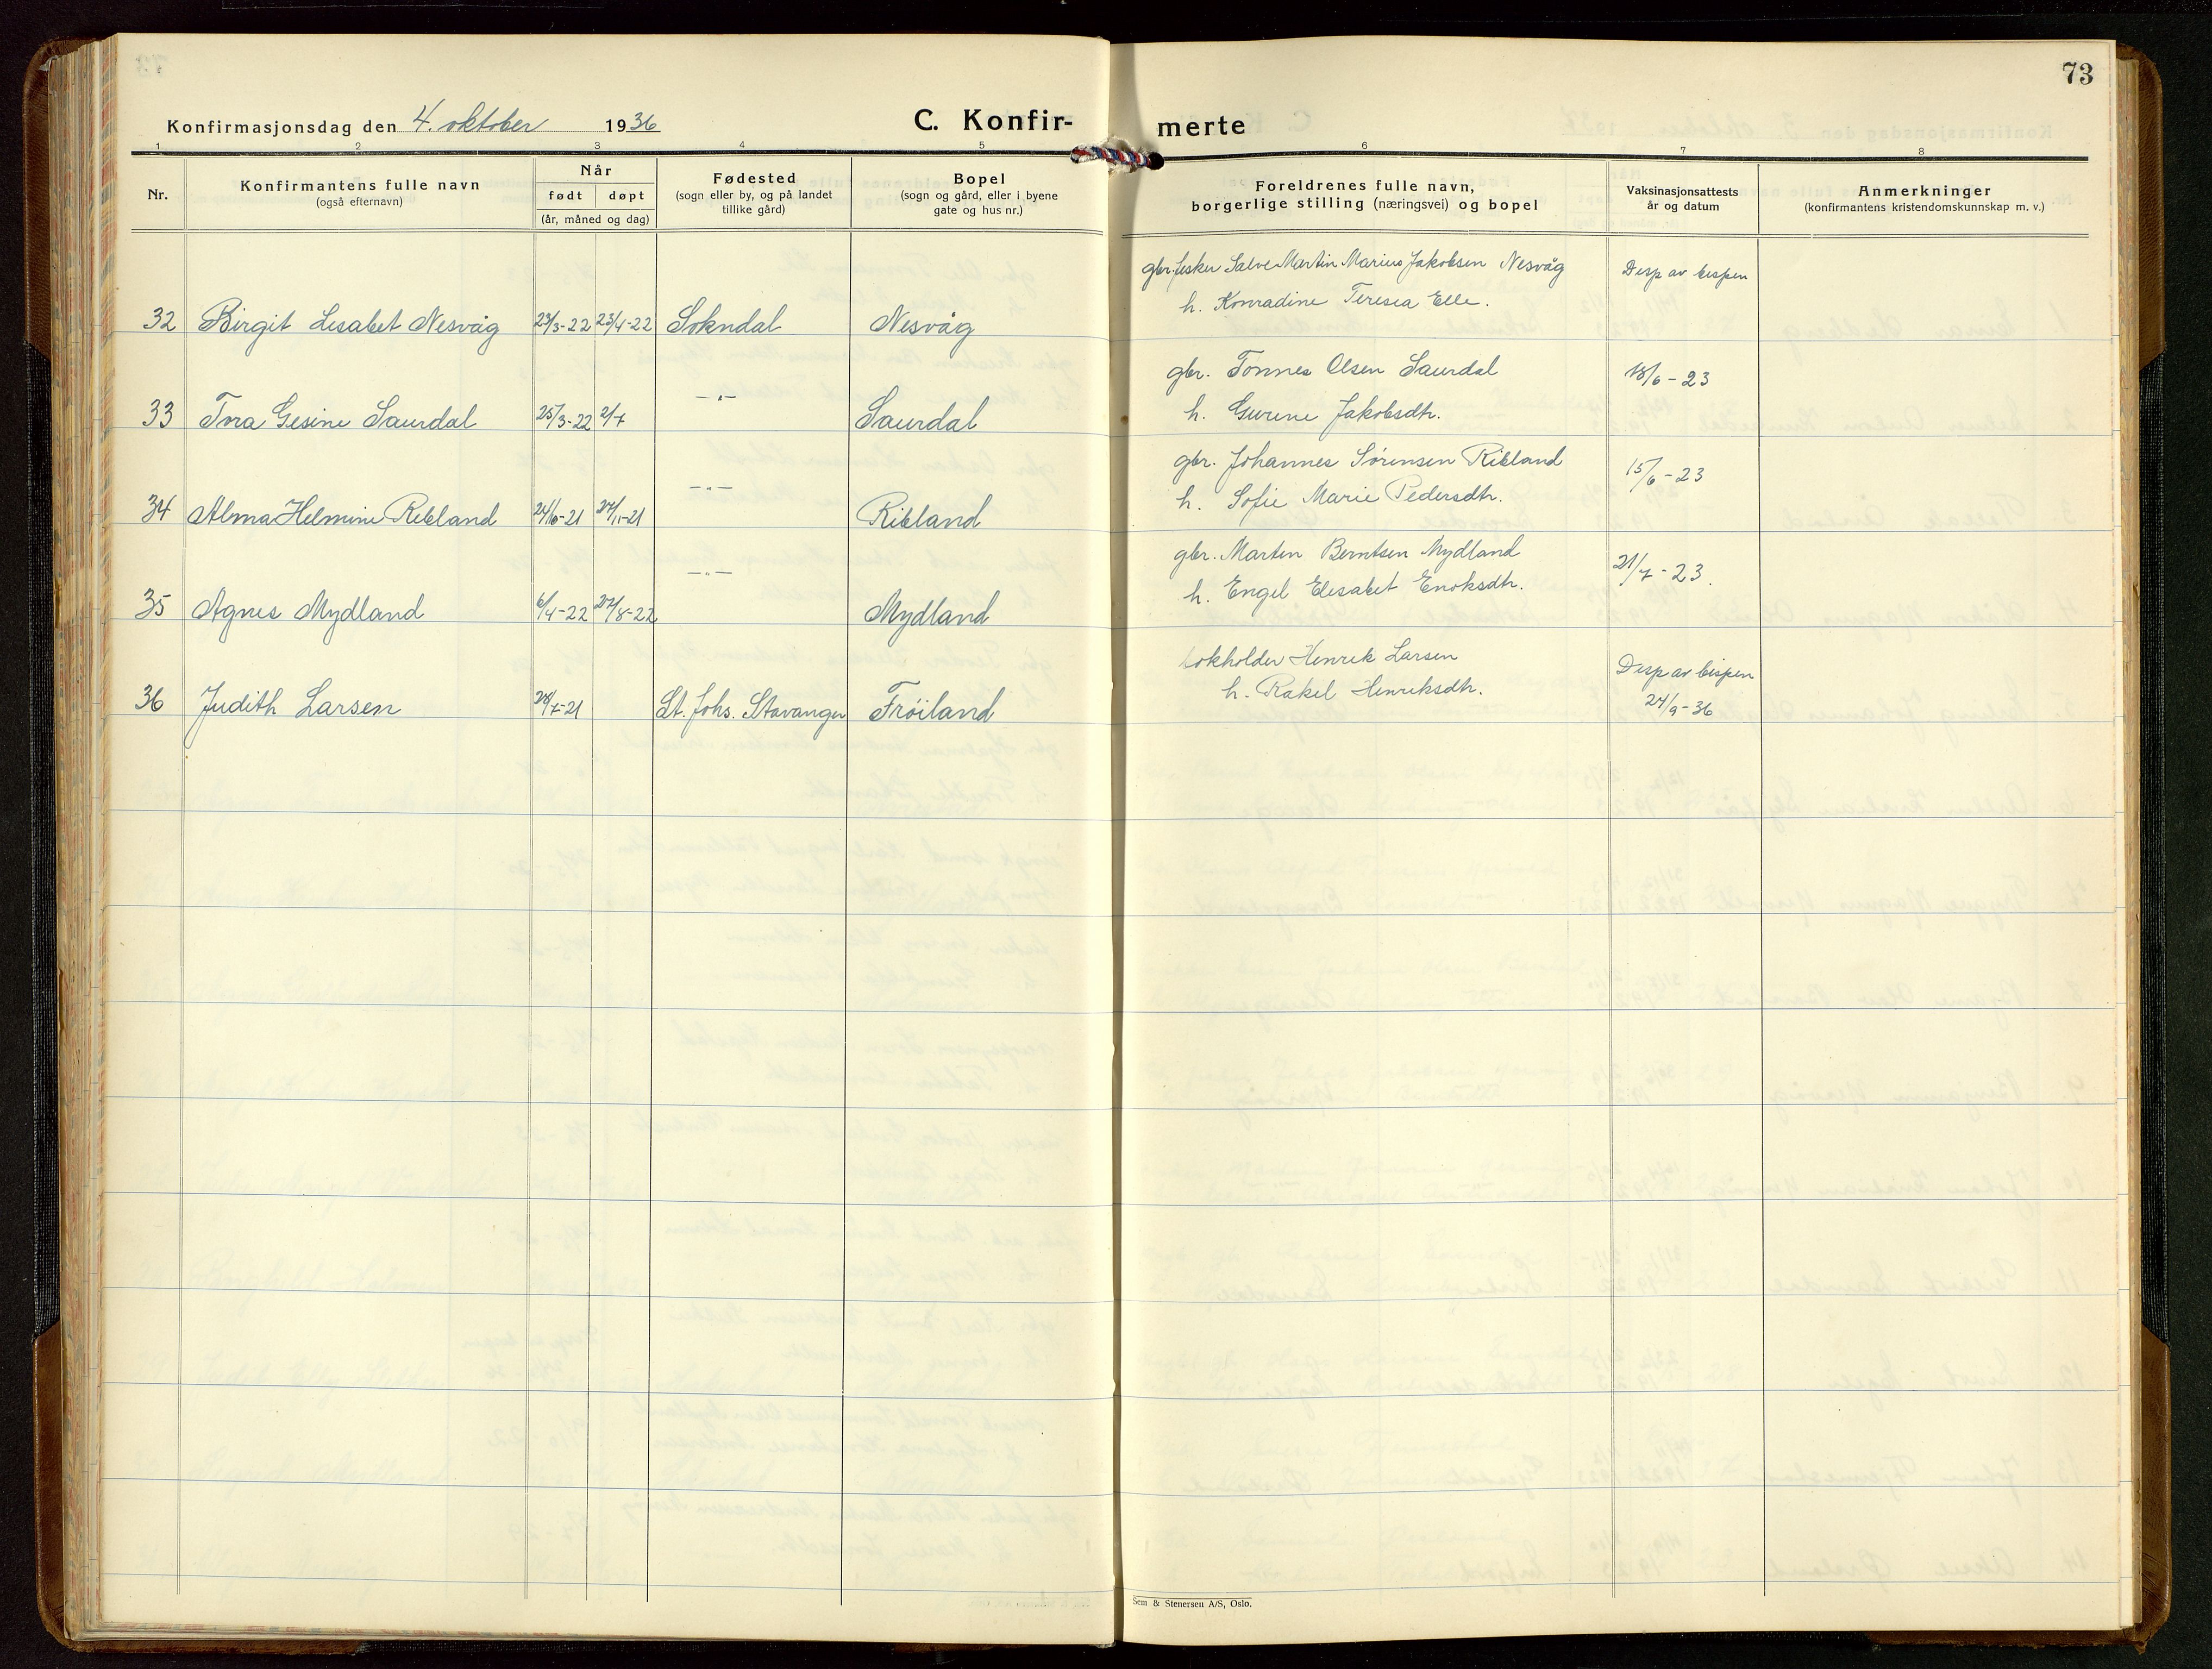 73
Konfirmasjonsdag den 4. oktober 1936
C. Konfir- merte
1 2 3 4 5 6 7 8
Nr.
Konfirmantens fulle navn
(også efternavn)
Når
født døpt
(år, måned og dag)
Fødested
(sogn eller by, og på landet
tillike gård)
Bopel
(sogn og gård, eller i byene
gate og hus nr.)
Foreldrenes fulle navn,
borgerlige stilling (næringsvei) og bopel
Vaksinasjonsattests
år og datum
Anmerkninger
(konfirmantens kristendomskunnskap m. v.)
gbr. fisker Salve Martin Marius Jakobsen Nesvåg Desp av bispen
h. Konradine Teresia Elle.
32 Birgit Lisabet Nesvåg 23/3-22 23/4-22 Sokndal Nesvåg
gbr. Tønnes Olsen Saurdal 18/6-23
33 Tora Gesine Saurdal 25/3-22 2/7 —"— Saurdal
h. Gurine Jakobsdtr.
gbr. Johannes Sørensen Ribland 15/6-23
34 Alma Helmine Ribland 24/10-21 27/11-21 —"— Ribland
h. Sofie Marie Pedersdtr.
gbr. Martin Berntsen Mydland 21/7-23.
35 Agnes Mydland 6/4-22 27/8-22 —"— Mydland
h. Engel Elisabet Enoksdtr.
bokholder Henrik Larsen Desp av bispen
36 Judith Larsen 28/7-21 St. Johs. Stavanger Frøiland
h. Rakel Henriksdtr. 24/9-36
Sem & Stenersen A/S, Oslo.